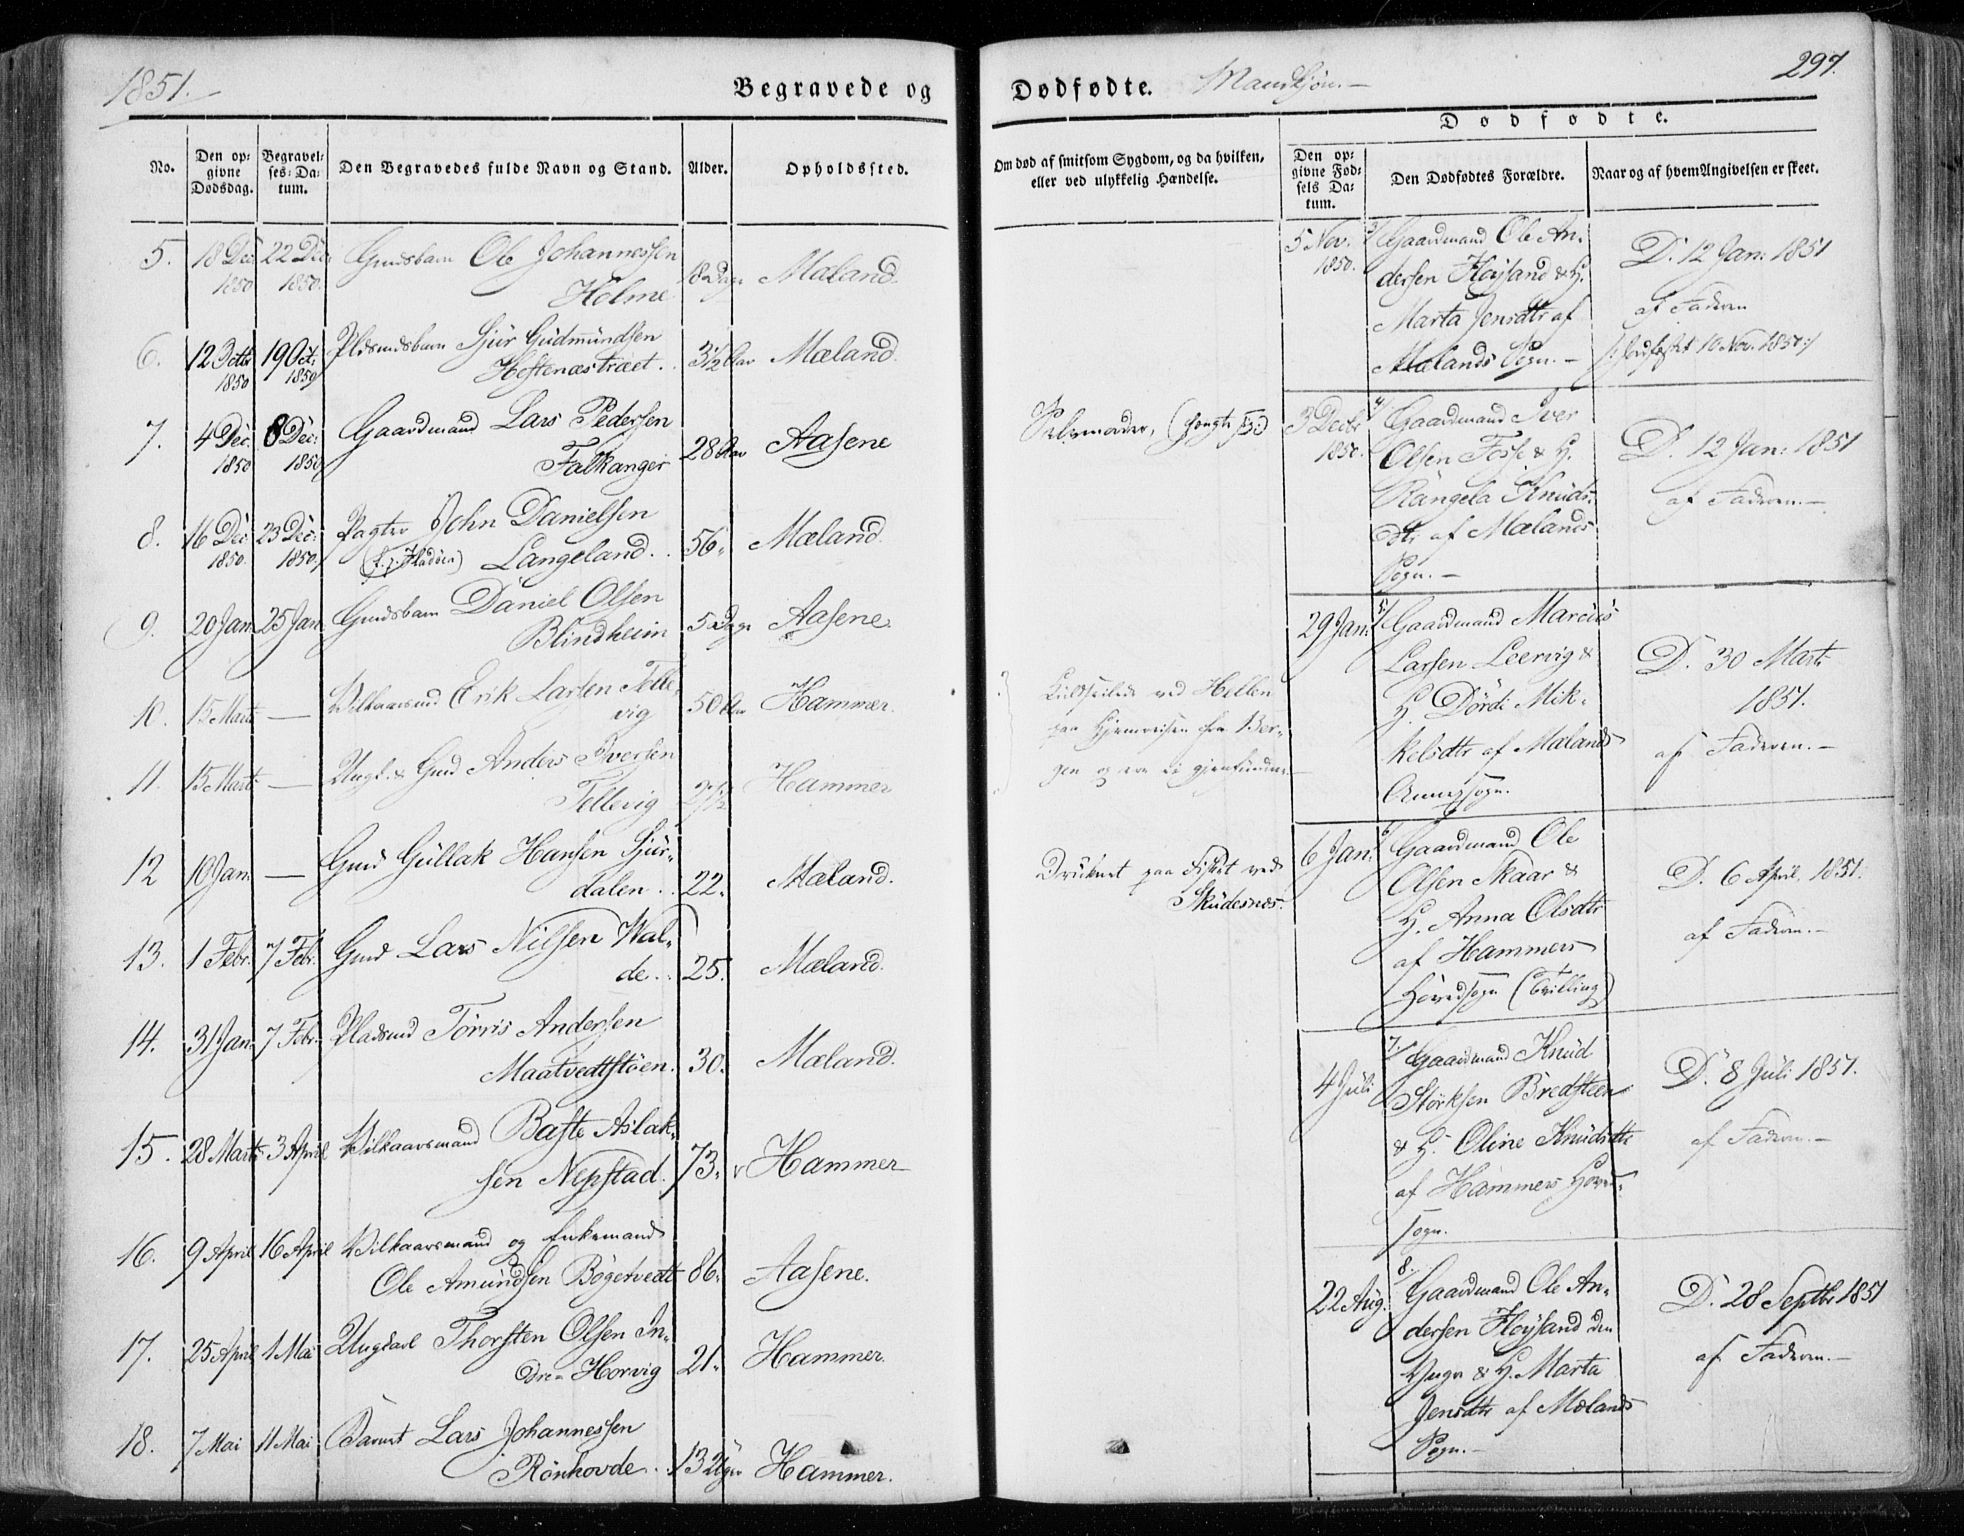 1851.
Begravede og
Dødfødte. Mandkjøn.
297.
Dødfødte.
No.
Den opgivne Dødsdag.
Begravelses-Datum.
Den Begravedes fulde Navn og Stand.
Alder.
Opholdssted.
Om død af smitsom Sygdom, og da hvilken, eller ved ulykkelig Hændelse.
Den opgivne Fødsels Datum.
Den Dødfødtes Forældre.
Naar og af hvem Angivelsen er skeet.
5. 18 Dec 1850 22 Dec 1850. Gmdsbarn Ole Johannessen
Holme 8 Dage Mæland.
6. 12 Octbr 1850 19 Oct. 1850 Pldsmdsbarn Sjur Gudmundsen
Hostenæstræet. 3½ Aar Mæland
7. 4 Dec. 1850 8 Dec: 1850 Gaardmand Lars Pedersen
Falkanger 28 Aar Aasene
Selvmorder, (hængte sig)
8. 16 Dec. 1850. 23 Dec: 1850. Pagter John Danielsen
Langeland. 56. Mæland.
9. 20 Jan. 25 Jan. Gmdsbarn Daniel Olsen
Blindheim 5 Dage Aasene
10. 15 Marts — Vilkaarsmd Erik Larsen Telle-
vig 50 Aar Hammer.
11. 15 Marts — Ungk. & Gmd Anders Iversen
Tellevig 27½ Hammer
Kuldseilede ved Hellen
paa Hjemreisen fra Ber-
gen og ere ei gjenfundne
12 10 Jan. — Gmd Gullak Hansen Sjur-
dalen. 22. Mæland.
Druknet paa Fisket ved
Skudesnes.
13. 1 Febr. 7 Febr. Gmd Lars Nilsen Wal-
de. 25. Mæland.
14. 31 Jan. 7 Febr. Pladsmd Torris Andersen
Maatvedtstøen. 30. Mæland.
15. 28 Marts 3 April Vilkaarsmand Baste Aslak-
sen Nepstad. 73. Hammer
16. 9 April 16 April Vilkaarsmand og Enkemand
Ole Amundsen Bøgetvedt 86. Aasene.
17. 25 April 1 Mai Ungkarl Thorsten Olsen In-
dre-Horvig 21. Hammer.
18. 7 Mai 11 Mai Barnet Lars Johannessen
Rønhovde. 13 Uger Hammer.
5 Nov. 1850. Gaardmand Ole An-
dersen Høysand & H.
Marta Jensdtr af
Mælands Sogn. —
D. 12 Jan: 1851
af Faderen
10 Nov. 1850
3 Decbr 1850. Gaardmand Iver
Olsen Fosse & H.
Rangela Knuds-
dtr af Mælands
Sogn. —
D. 12 Jan: 1851
af Faderen. —
29 Jan. 5. Gaardmand Marcus
Larsen Leervig &
H. Dørdi Mik-
kelsdtr af Mælands
Annexsogn.
D. 30 Marts
1851.
af Faderen. —
6 Jan. 6 Gaardmand Ole
Olsen Skaar &
H. Anna Olsdtr
af Hammers
Hovedsogn (Tvilling)
D. 6 April. 1851.
af Faderen. —
4 Juli 7. Gaardmand Knud
Størksen Bredsteen
& H. Oline Knudsdtr
af Hammers Hoved-
sogn.
D. 8 Juli 1851.
af Faderen. —
22 Aug. 8. Gaardmand Ole An-
dersen Høysand den
Yngre & H. Marta
Jensdtr af Mælands
Sogn. —
D. 28 Septbr 1851
af Faderen. —